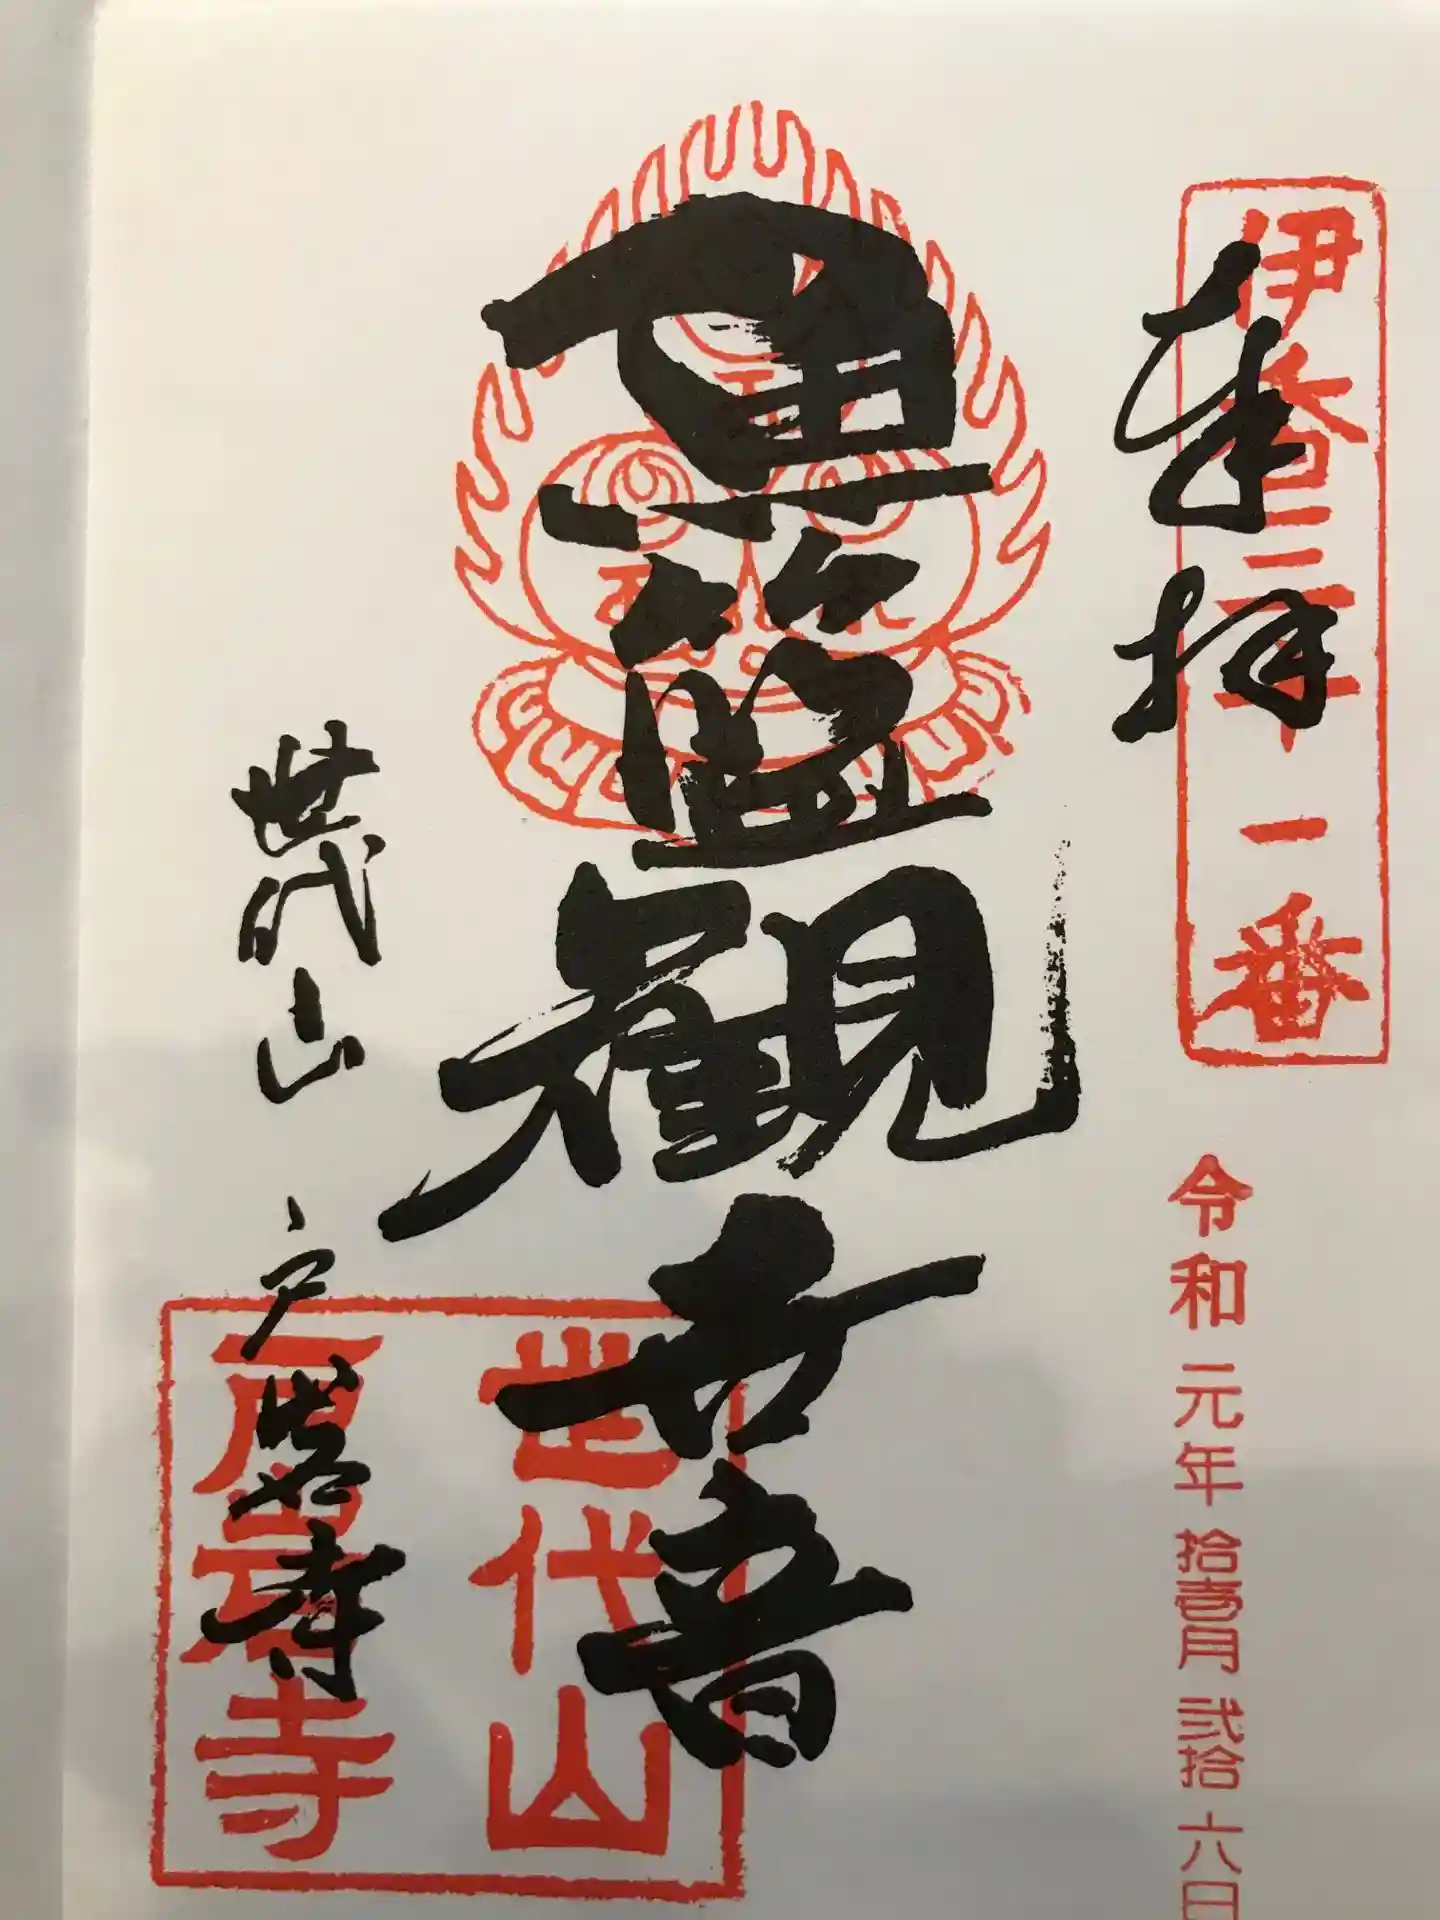 伊香三十一番
奉拝
令和元年拾壹月弐拾六日
魚籃観世音
世代山
戸岩寺
世代山 戸岩寺